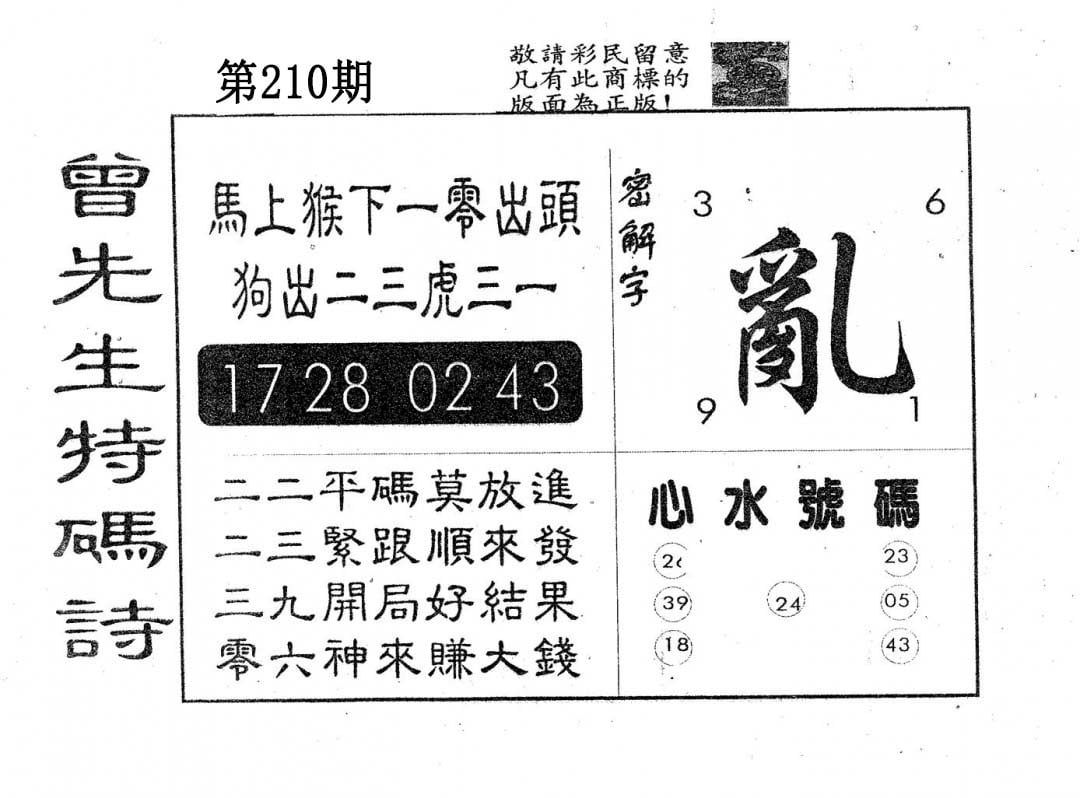 第210期
敬請彩民留意
凡有此商標的
版面為正版!
曾先生特碼詩
馬上猴下一零出頭
狗出二三虎三一
17 28 02 43
二二平碼莫放進
二三緊跟順來發
三九開局好結果
零六神來賺大錢
密解字
3 6
亂
9 1
心水號碼
23
39 24 05
18 43